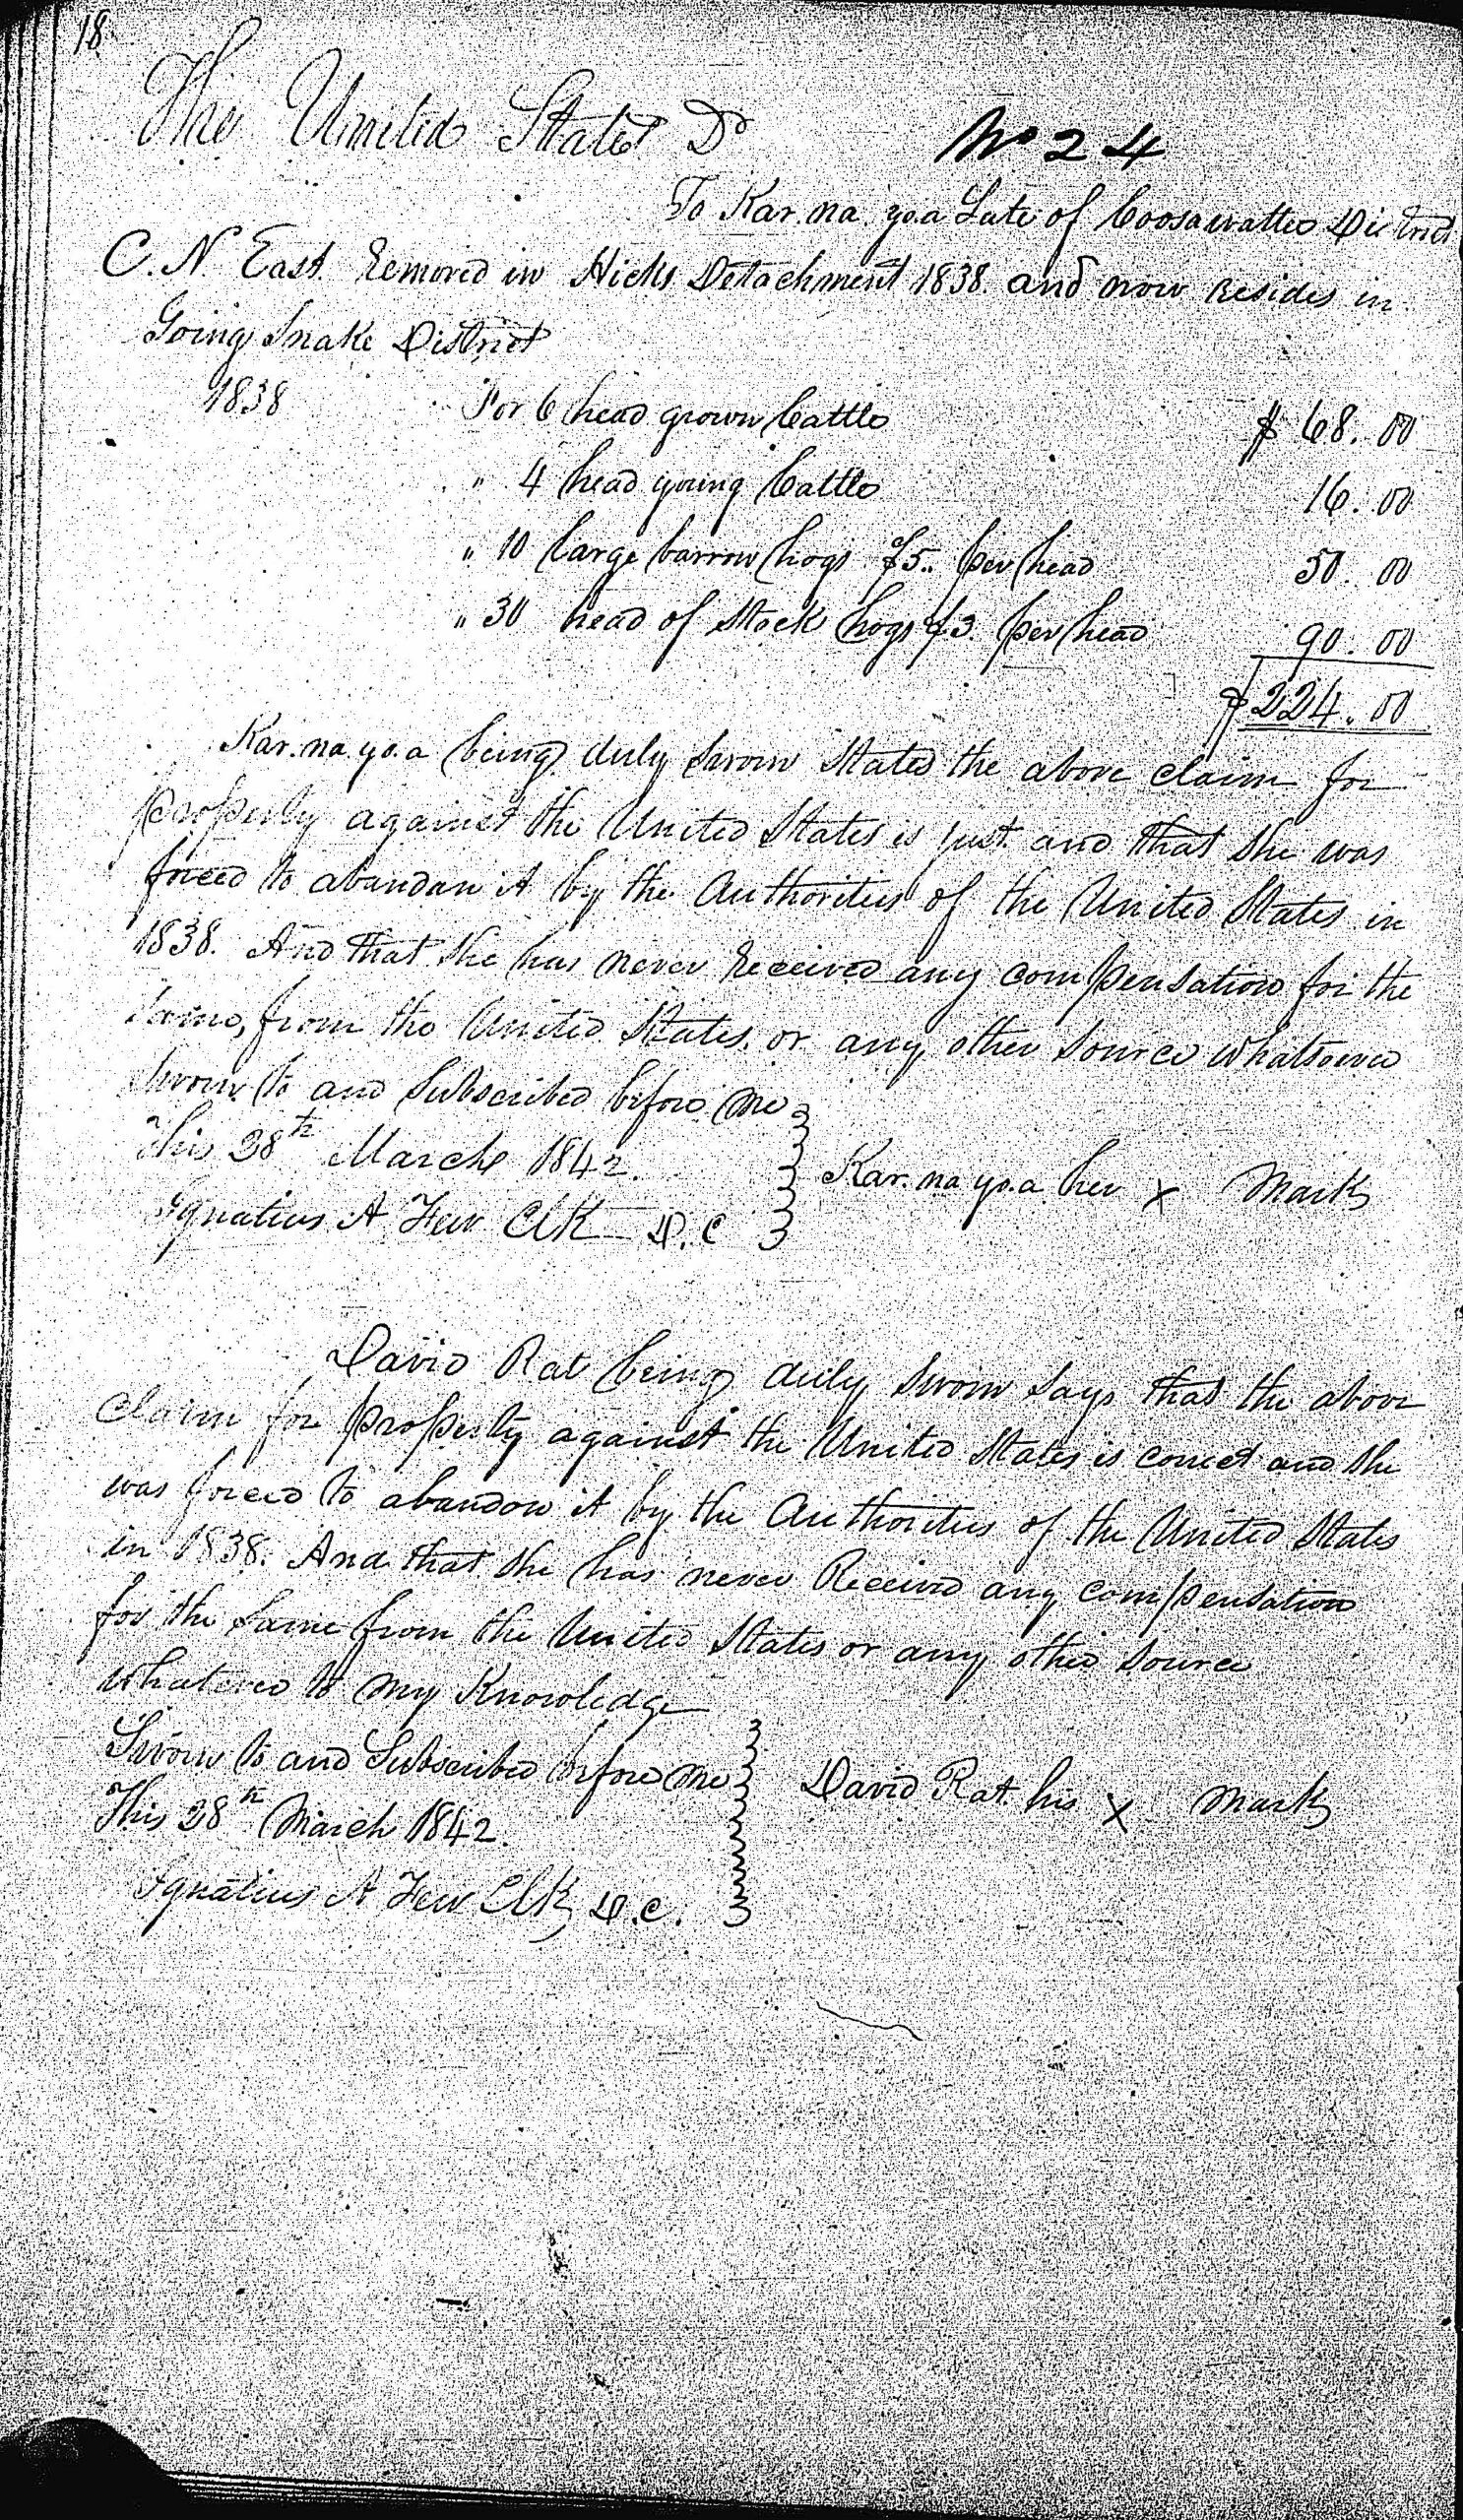 18
The United States Dr
No 24
To Kar.na.yo.a Late of Coosawattee District
C. N. East. Removed in Hicks Detachment 1838. and now resides in
Going Snake District
1838 For 6 head grown Cattle $ 68.00
" 4 head young Cattle 16.00
" 10 large barrow hogs $5.. per head 50.00
" 30 head of Stock hogs $3. per head 90.00
$224.00
Kar.na.yo.a being duly sworn states the above claim for
property against the United States is just and that she was
forced to abandan it by the Authorities of the United States in
1838. And that she has never Received any compensation for the
same, from the United States. or any other source whatsoever
Sworn to and Subscribed before me
This 28th March 1842.
Ignatius A Few Clk D.C
Kar.na yo.a her x Mark
David Rat being duly sworn says that the above
claim for property against the United States is correct and she
was forced to abandon it by the Authorities of the United States
in 1838. And that she has never Received any compensation
for the same from the United States or any other source
whatever to my Knowledge
Sworn to and Subscribed before me
This 28th March 1842.
Ignatius A Few Clk D.C.
David Rat his x Mark